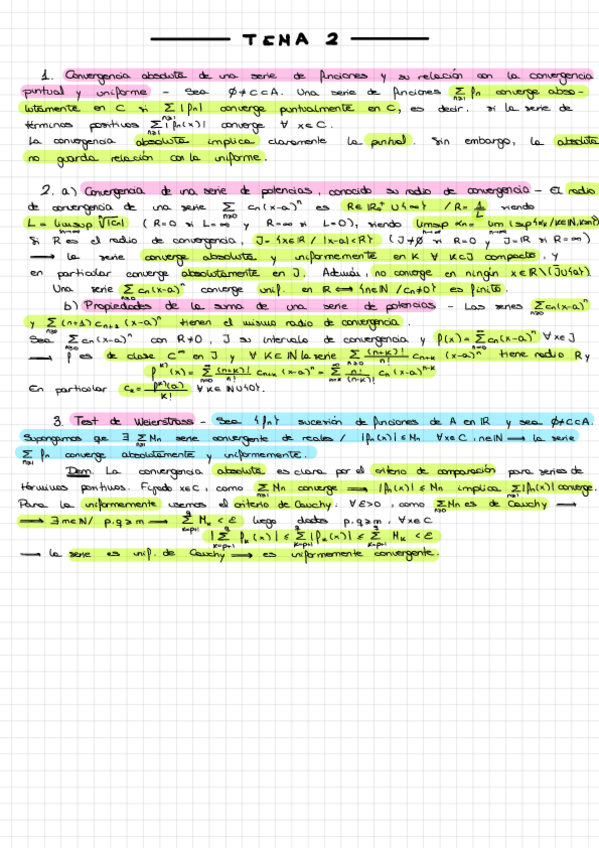 TEMA 2
1. Convergencia absoluta de una serie de funciones y su relación con la convergencia
puntual y uniforme - Sea ∅≠C⊂A. Una serie de funciones ∑_{n≥1} fn converge abso-
lutamente en C si ∑|fn| converge puntualmente en C, es decir, si la serie de
términos positivos ∑_{n≥1}|fn(x)| converge ∀ x∈C.
La convergencia absoluta implica claramente la puntual. Sin embargo, la absoluta
no guarda relación con la uniforme.
2. a) Convergencia de una serie de potencias, conocido su radio de convergencia - El radio
de convergencia de una serie ∑_{n≥0} cn(x-a)^n es R∈ℝ₀⁺∪{∞} / R = 1/L siendo
L = limsup ⁿ√|cn| (R=0 si L=∞ y R=∞ si L=0), siendo limsup αn = lim (sup{αk/k∈ℕ, k≥n})
Si R es el radio de convergencia, J={x∈ℝ / |x-a|<R} (J≠∅ si R=0 y J=ℝ si R=∞)
⟶ la serie converge absoluta y uniformemente en K ∀ K⊂J compacto, y
en particular converge absolutamente en J. Además, no converge en ningún x∈ℝ\(J∪{a}).
Una serie ∑_{n≥0} cn(x-a)^n converge unif. en ℝ ⟺ {n∈ℕ / cn≠0} es finito.
b) Propiedades de la suma de una serie de potencias - Las series ∑_{n≥0} cn(x-a)^n
y ∑_{n≥0} (n+1) c_{n+1} (x-a)^n tienen el mismo radio de convergencia.
Sea ∑_{n≥0} cn(x-a)^n con R≠0, J su intervalo de convergencia y f(x)=∑_{n=0}^∞ cn(x-a)^n ∀x∈J
⟶ f es de clase C^∞ en J y ∀ k∈ℕ la serie ∑_{n≥0} (n+k)!/n! c_{n+k} (x-a)^n tiene radio R y
f^{k)}(x) = ∑_{n=0}^∞ (n+k)!/n! c_{n+k} (x-a)^n = ∑_{n=k}^∞ n!/(n-k)! cn (x-a)^{n-k}
En particular ck = f^{k)}(a)/k! ∀k∈ℕ∪{0}.
3. Test de Weierstrass - Sea {fn} sucesión de funciones de A en ℝ y sea ∅≠C⊂A.
Supongamos que ∃ ∑_{n≥1} Mn serie convergente de reales / |fn(x)| ≤ Mn ∀x∈C, n∈ℕ ⟶ la serie
∑_{n≥1} fn converge absolutamente y uniformemente.
Dem. La convergencia absoluta es clara por el criterio de comparación para series de
términos positivos. Fijado x∈C, como ∑_{n≥1} Mn converge ⟹ |fn(x)| ≤ Mn implica ∑|fn(x)| converge.
Para la uniformemente usemos el criterio de Cauchy. ∀ε>0, como ∑_{n≥0} Mn es de Cauchy ⟶
⟶ ∃ m∈ℕ / p,q≥m ⟶ ∑_{k=p+1}^q Mk < ε luego dados p,q≥m, ∀x∈C
|∑_{k=p+1}^q fk(x)| ≤ ∑_{k=p+1}^q |fk(x)| ≤ ∑_{k=p+1}^q Mk < ε
⟶ la serie es unif. de Cauchy ⟶ es uniformemente convergente.